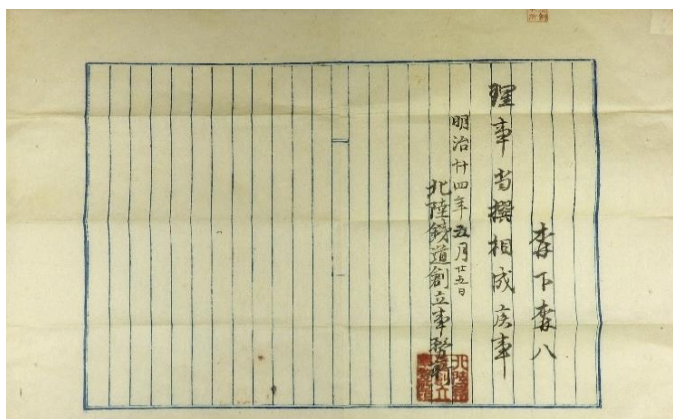 森下森八
理事当撰相成候事
明治廿四年五月廿五日
北陸鉄道創立事務所